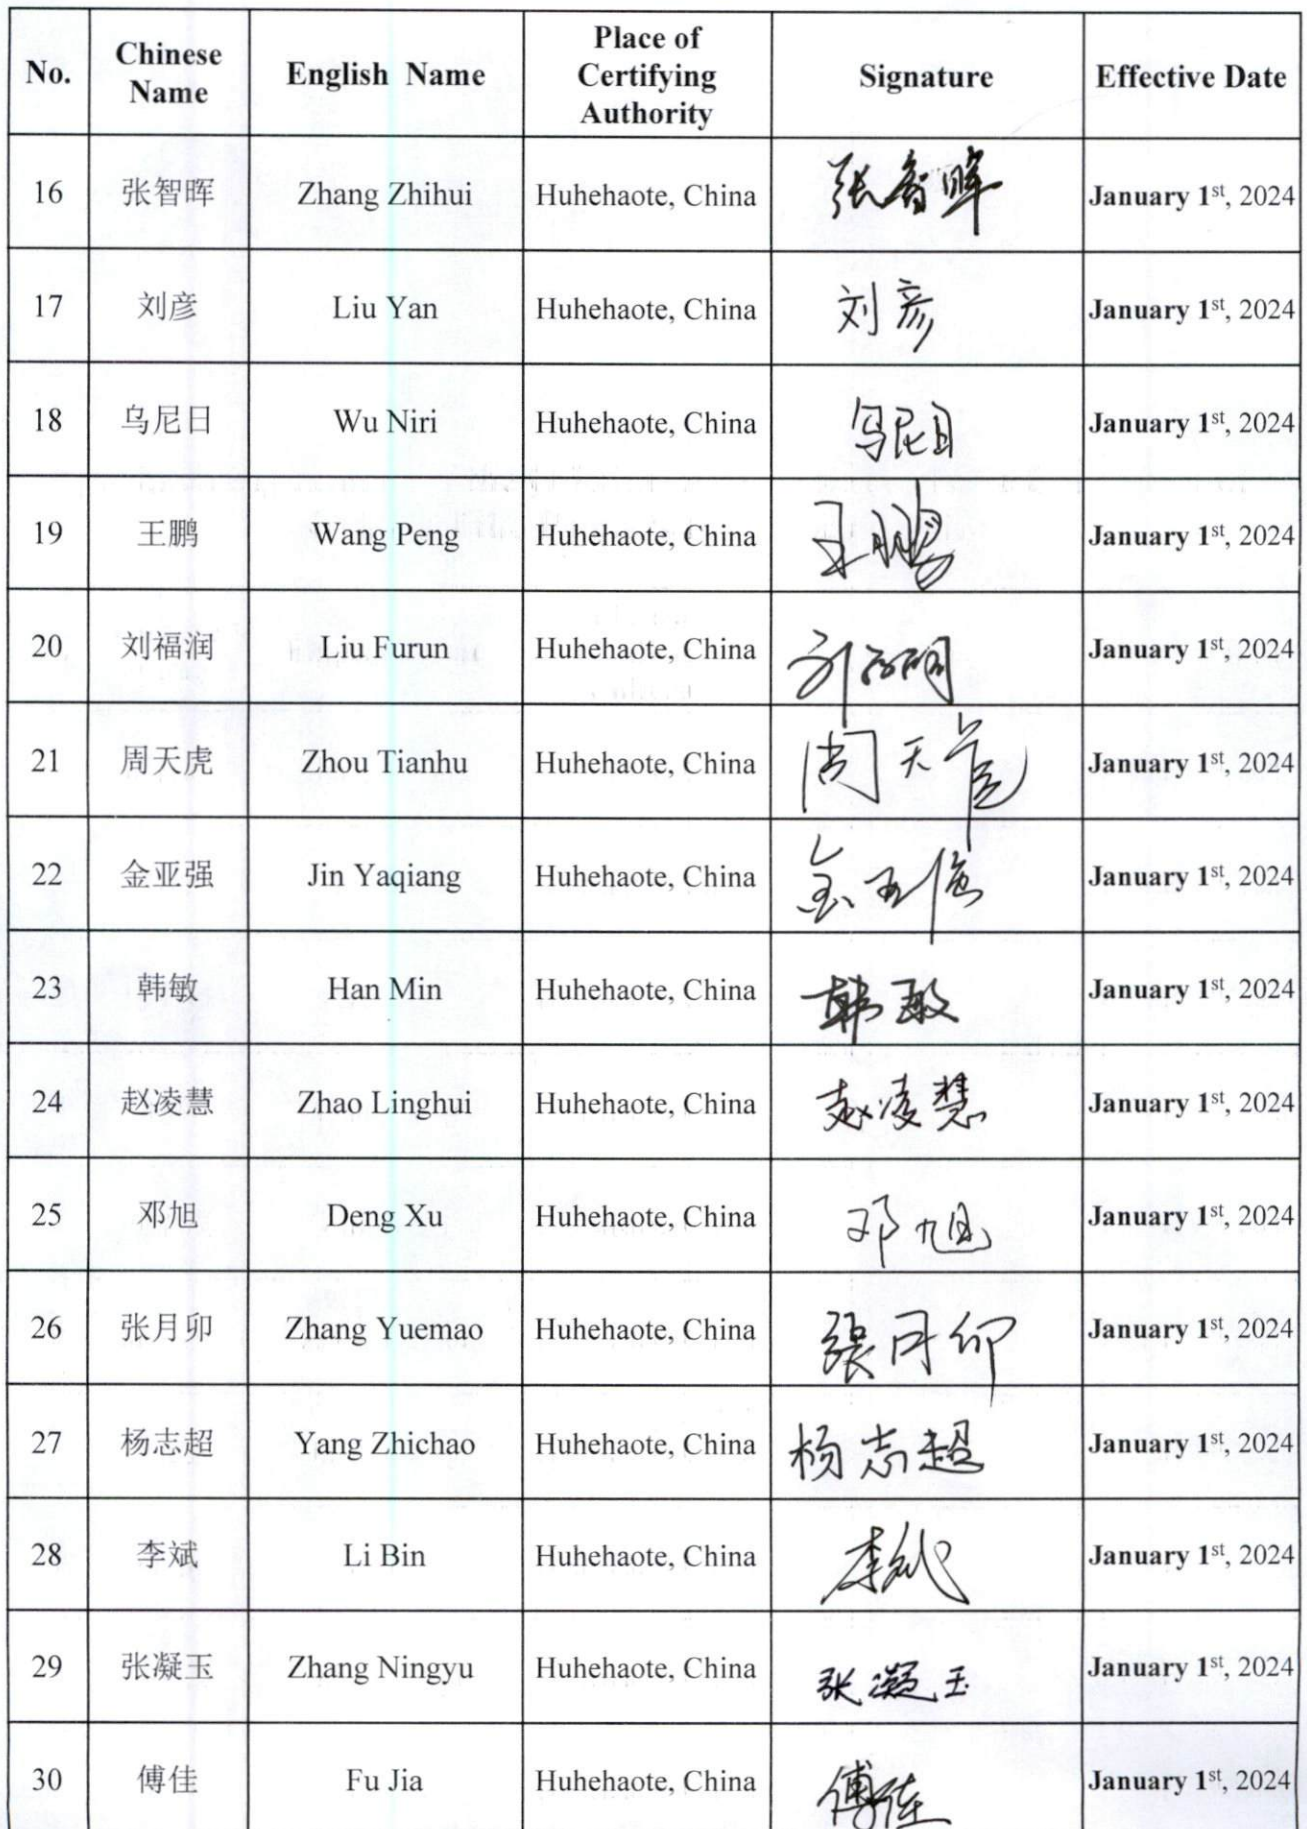 No. Chinese Name English Name Place of Certifying Authority Signature Effective Date
16 张智晖 Zhang Zhihui Huhehaote, China 张智晖 January 1st, 2024
17 刘彦 Liu Yan Huhehaote, China 刘彦 January 1st, 2024
18 乌尼日 Wu Niri Huhehaote, China 乌尼日 January 1st, 2024
19 王鹏 Wang Peng Huhehaote, China 王鹏 January 1st, 2024
20 刘福润 Liu Furun Huhehaote, China January 1st, 2024
21 周天虎 Zhou Tianhu Huhehaote, China 周天虎 January 1st, 2024
22 金亚强 Jin Yaqiang Huhehaote, China 金亚强 January 1st, 2024
23 韩敏 Han Min Huhehaote, China 韩敏 January 1st, 2024
24 赵凌慧 Zhao Linghui Huhehaote, China 赵凌慧 January 1st, 2024
25 邓旭 Deng Xu Huhehaote, China 邓旭 January 1st, 2024
26 张月卯 Zhang Yuemao Huhehaote, China 張月卯 January 1st, 2024
27 杨志超 Yang Zhichao Huhehaote, China 杨志超 January 1st, 2024
28 李斌 Li Bin Huhehaote, China 李斌 January 1st, 2024
29 张凝玉 Zhang Ningyu Huhehaote, China 张凝玉 January 1st, 2024
30 傅佳 Fu Jia Huhehaote, China 傅佳 January 1st, 2024